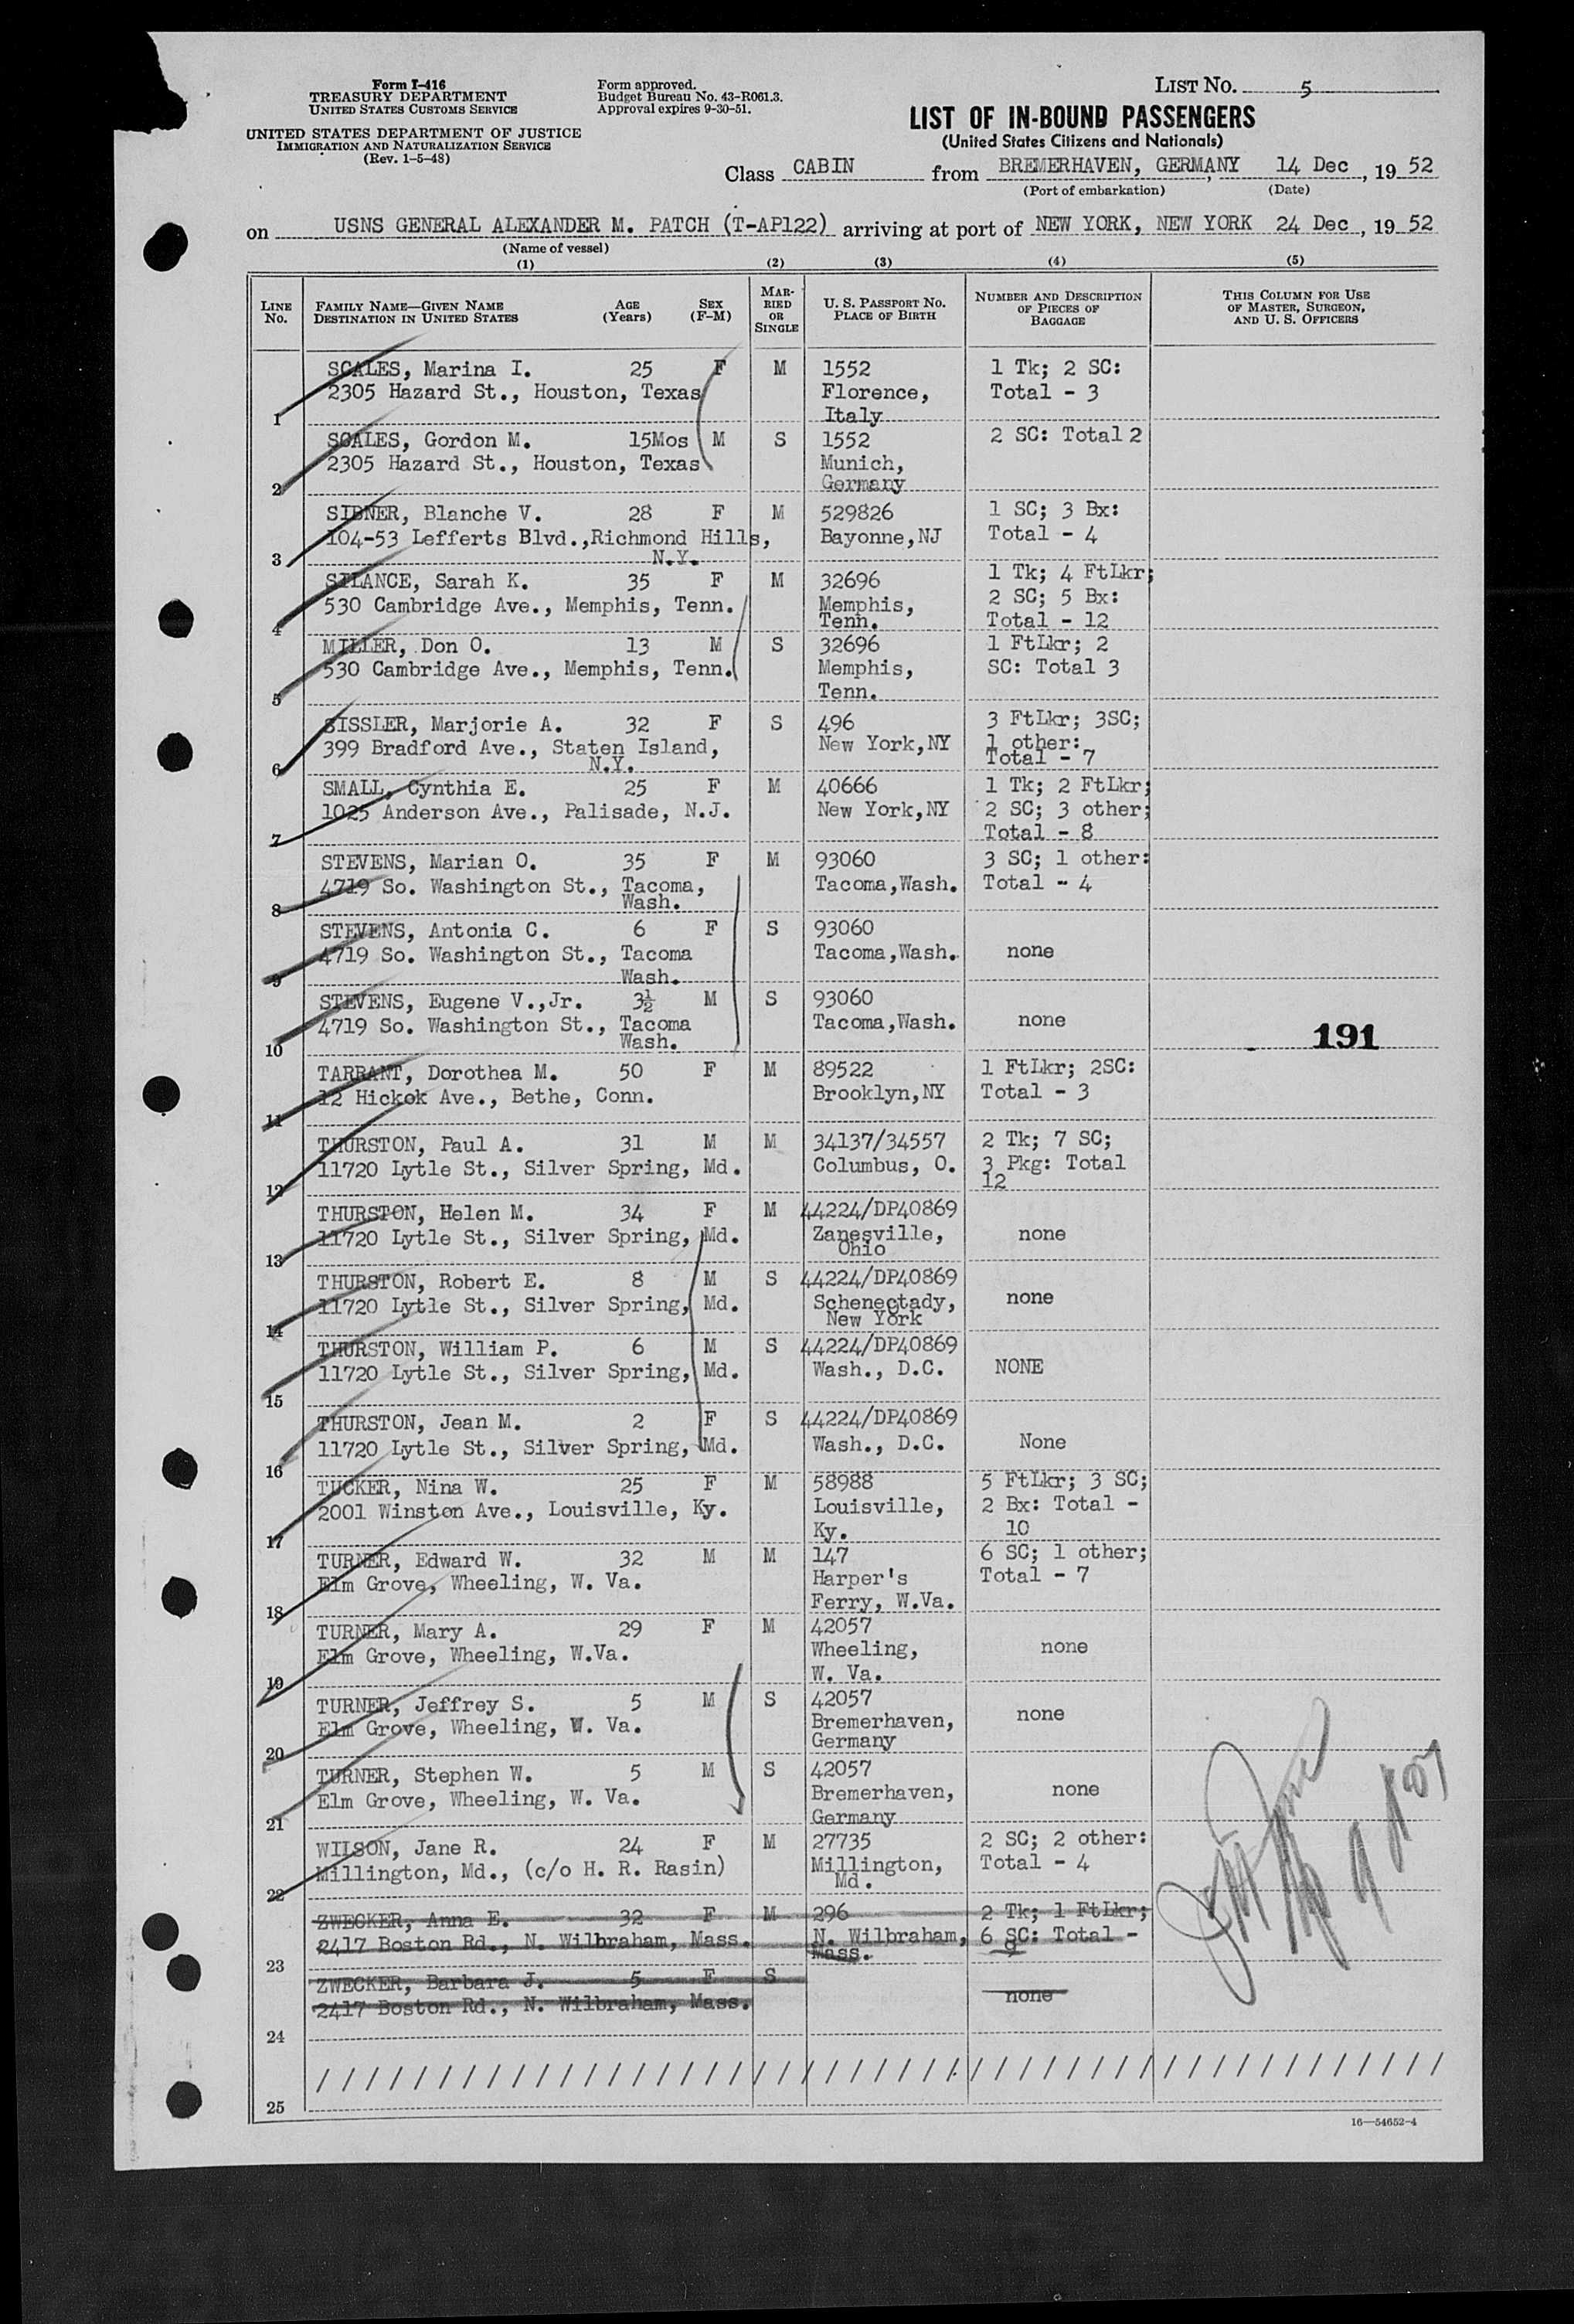 Form I-416
TREASURY DEPARTMENT
UNITED STATES CUSTOMS SERVICE
UNITED STATES DEPARTMENT OF JUSTICE
IMMIGRATION AND NATURALIZATION SERVICE
(Rev. 1-5-48)
Form approved.
Budget Bureau No. 43-R061.3.
Approval expires 9-30-51.
LIST NO. 5
LIST OF IN-BOUND PASSENGERS
(United States Citizens and Nationals)
Class CABIN from BREMERHAVEN, GERMANY, 14 Dec, 19 52
(Port of embarkation) (Date)
on USNS GENERAL ALEXANDER M. PATCH (T-AP122) arriving at port of NEW YORK, NEW YORK 24 Dec, 19 52
(Name of vessel)
(1) (2) (3) (4) (5)
LINE NO.
FAMILY NAME—GIVEN NAME
DESTINATION IN UNITED STATES
AGE (Years)
SEX (F-M)
MARRIED OR SINGLE
U. S. PASSPORT NO.
PLACE OF BIRTH
NUMBER AND DESCRIPTION OF PIECES OF BAGGAGE
THIS COLUMN FOR USE OF MASTER, SURGEON, AND U. S. OFFICERS
SCALES, Marina I. 25 F M 1552 1 Tk; 2 SC:
2305 Hazard St., Houston, Texas Florence, Total - 3
1 Italy
SCALES, Gordon M. 15Mos M S 1552 2 SC: Total 2
2305 Hazard St., Houston, Texas Munich,
2 Germany
SIBNER, Blanche V. 28 F M 529826 1 SC; 3 Bx:
104-53 Lefferts Blvd.,Richmond Hills, Bayonne,NJ Total - 4
3 N.Y.
SILANCE, Sarah K. 35 F M 32696 1 Tk; 4 FtLkr;
530 Cambridge Ave., Memphis, Tenn. Memphis, 2 SC; 5 Bx:
4 Tenn. Total - 12
MILLER, Don O. 13 M S 32696 1 FtLkr; 2
530 Cambridge Ave., Memphis, Tenn. Memphis, SC: Total 3
5 Tenn.
SISSLER, Marjorie A. 32 F S 496 3 FtLkr; 3SC;
399 Bradford Ave., Staten Island, New York,NY 1 other:
6 N.Y. Total - 7
SMALL, Cynthia E. 25 F M 40666 1 Tk; 2 FtLkr;
1025 Anderson Ave., Palisade, N.J. New York,NY 2 SC; 3 other;
7 Total - 8
STEVENS, Marian O. 35 F M 93060 3 SC; 1 other:
4719 So. Washington St., Tacoma, Tacoma,Wash. Total - 4
8 Wash.
STEVENS, Antonia C. 6 F S 93060
4719 So. Washington St., Tacoma Tacoma,Wash. none
9 Wash.
STEVENS, Eugene V.,Jr. 3½ M S 93060
4719 So. Washington St., Tacoma Tacoma,Wash. none
10 Wash. 191
TARRANT, Dorothea M. 50 F M 89522 1 FtLkr; 2SC:
12 Hickok Ave., Bethe, Conn. Brooklyn,NY Total - 3
11
THURSTON, Paul A. 31 M M 34137/34557 2 Tk; 7 SC;
11720 Lytle St., Silver Spring, Md. Columbus, O. 3 Pkg: Total
12 12
THURSTON, Helen M. 34 F M 44224/DP40869
11720 Lytle St., Silver Spring, Md. Zanesville, none
13 Ohio
THURSTON, Robert E. 8 M S 44224/DP40869
11720 Lytle St., Silver Spring, Md. Schenectady, none
14 New York
THURSTON, William P. 6 M S 44224/DP40869
11720 Lytle St., Silver Spring, Md. Wash., D.C. NONE
15
THURSTON, Jean M. 2 F S 44224/DP40869
11720 Lytle St., Silver Spring, Md. Wash., D.C. None
16
TUCKER, Nina W. 25 F M 58988 5 FtLkr; 3 SC;
2001 Winston Ave., Louisville, Ky. Louisville, 2 Bx: Total -
17 Ky. 10
TURNER, Edward W. 32 M M 147 6 SC; 1 other;
Elm Grove, Wheeling, W. Va. Harper's Total - 7
18 Ferry, W.Va.
TURNER, Mary A. 29 F M 42057
Elm Grove, Wheeling, W.Va. Wheeling, none
19 W. Va.
TURNER, Jeffrey S. 5 M S 42057
Elm Grove, Wheeling, W. Va. Bremerhaven, none
20 Germany
TURNER, Stephen W. 5 M S 42057
Elm Grove, Wheeling, W. Va. Bremerhaven, none
21 Germany
WILSON, Jane R. 24 F M 27735 2 SC; 2 other:
Millington, Md., (c/o H. R. Rasin) Millington, Total - 4
22 Md.
ZWECKER, Anna E. 32 F M 296 2 Tk; 1 FtLkr;
2417 Boston Rd., N. Wilbraham, Mass. N. Wilbraham, 6 SC: Total -
23 Mass. 9
ZWECKER, Barbara J. 5 F S
2417 Boston Rd., N. Wilbraham, Mass. none
24
/ / / / / / / / / / / / / / / / / / / / / / / / / / / / / / / / / / / / / / / / / / / / / /
25
16—54652-4